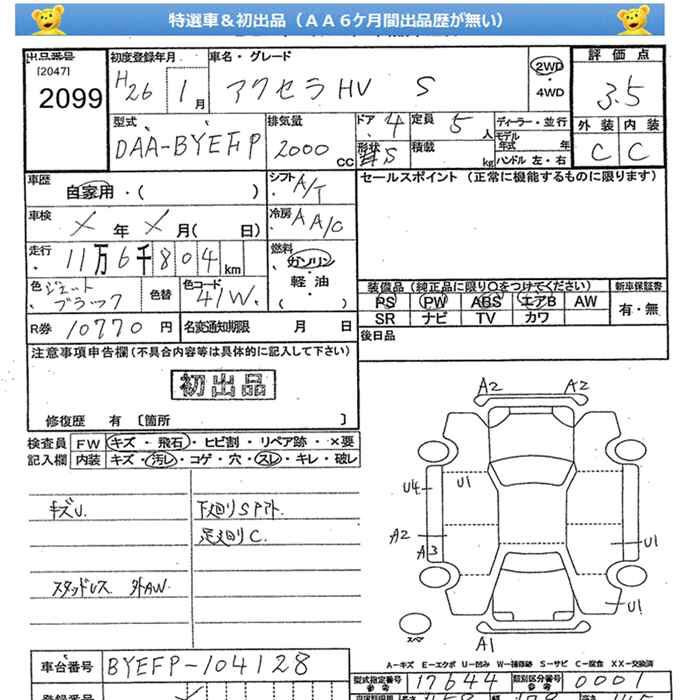 特選車＆初出品（ＡＡ６ケ月間出品歴が無い）
出品番号 初度登録年月 車名・グレード 2WD 評価点
[2047] H26 1月 アクセラHV S ・4WD 3.5
2099
型式 排気量 ドア 4 定員 5人 ディーラー・並行 外装 内装
DAA-BYEFP 2000cc 形状 積載 kg モデル年式 年 C C
ハンドル 左・右
車歴 自家用・( ) シフト A/T セールスポイント (正常に機能するものに限ります)
車検 X年X月( 日) 冷房 AA/C
走行 11万6千804km 燃料 ガソリン
軽油
( )
色 ジェットブラック 色替 色コード 41W 装備品（純正品に限り○をつけてください） 新車保証書
PS PW ABS エアB AW 有・無
SR ナビ TV カワ
R券 10770円 名変通知期限 月 日 後日品
注意事項申告欄(不具合内容等は具体的に記入して下さい)
初出品
修復歴 有 〔箇所 〕
検査員 FW キズ・飛石・ヒビ割・リペア跡・×要
記入欄 内装 キズ・汚レ・コゲ・穴・スレ・キレ・破レ
キズU. 下廻りSアト.
足廻りC.
スタッドレス 外AW.
A2 A2
U4 U1
A2
A3 U1
U1
スペア A1
A-キズ E-エクボ U-凹み W-補修跡 S-サビ C-腐食 XX-交換済
車台番号 BYEFP-104128 型式指定番号 参考 17644 類別区分番号 参考 0001
登録番号